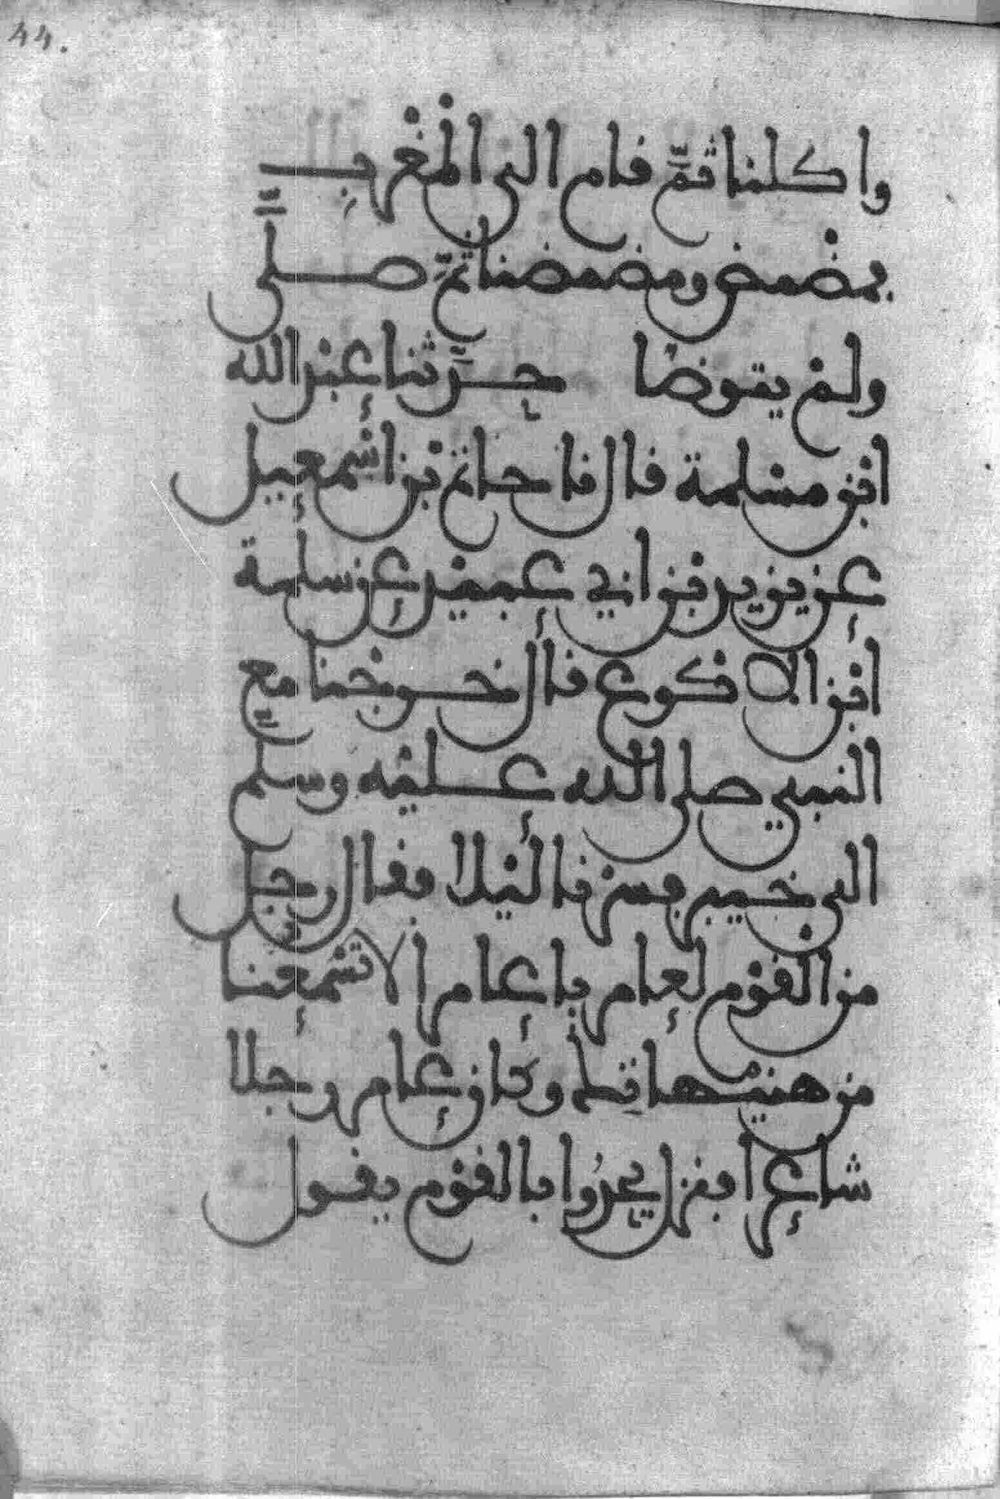 44.
واكلنا ثمَّ قام الى الْمغْرب
فمضْمض ومضمضنا ثمَّ صلَّى
ولمْ يتوضا حدَّثنا عبْد الله
ابْن مسْلمة قال نا حاتم بْن اسْمعيل
عن يزيد بْن ابي عبيْد عن سلمة
ابْن الاكوع قال خرجْنا مع
النبي صلى الله عليْه وسلَّم
الى خيبر فسرْنا ليْلا فقال رجل
من الْقوْم لعامر يا عامر الا تسْمعنا
منْ هنيْهاتك وكان عامر رجلا
شاعرا فنزل يحْدُوا بالقوْم يقول